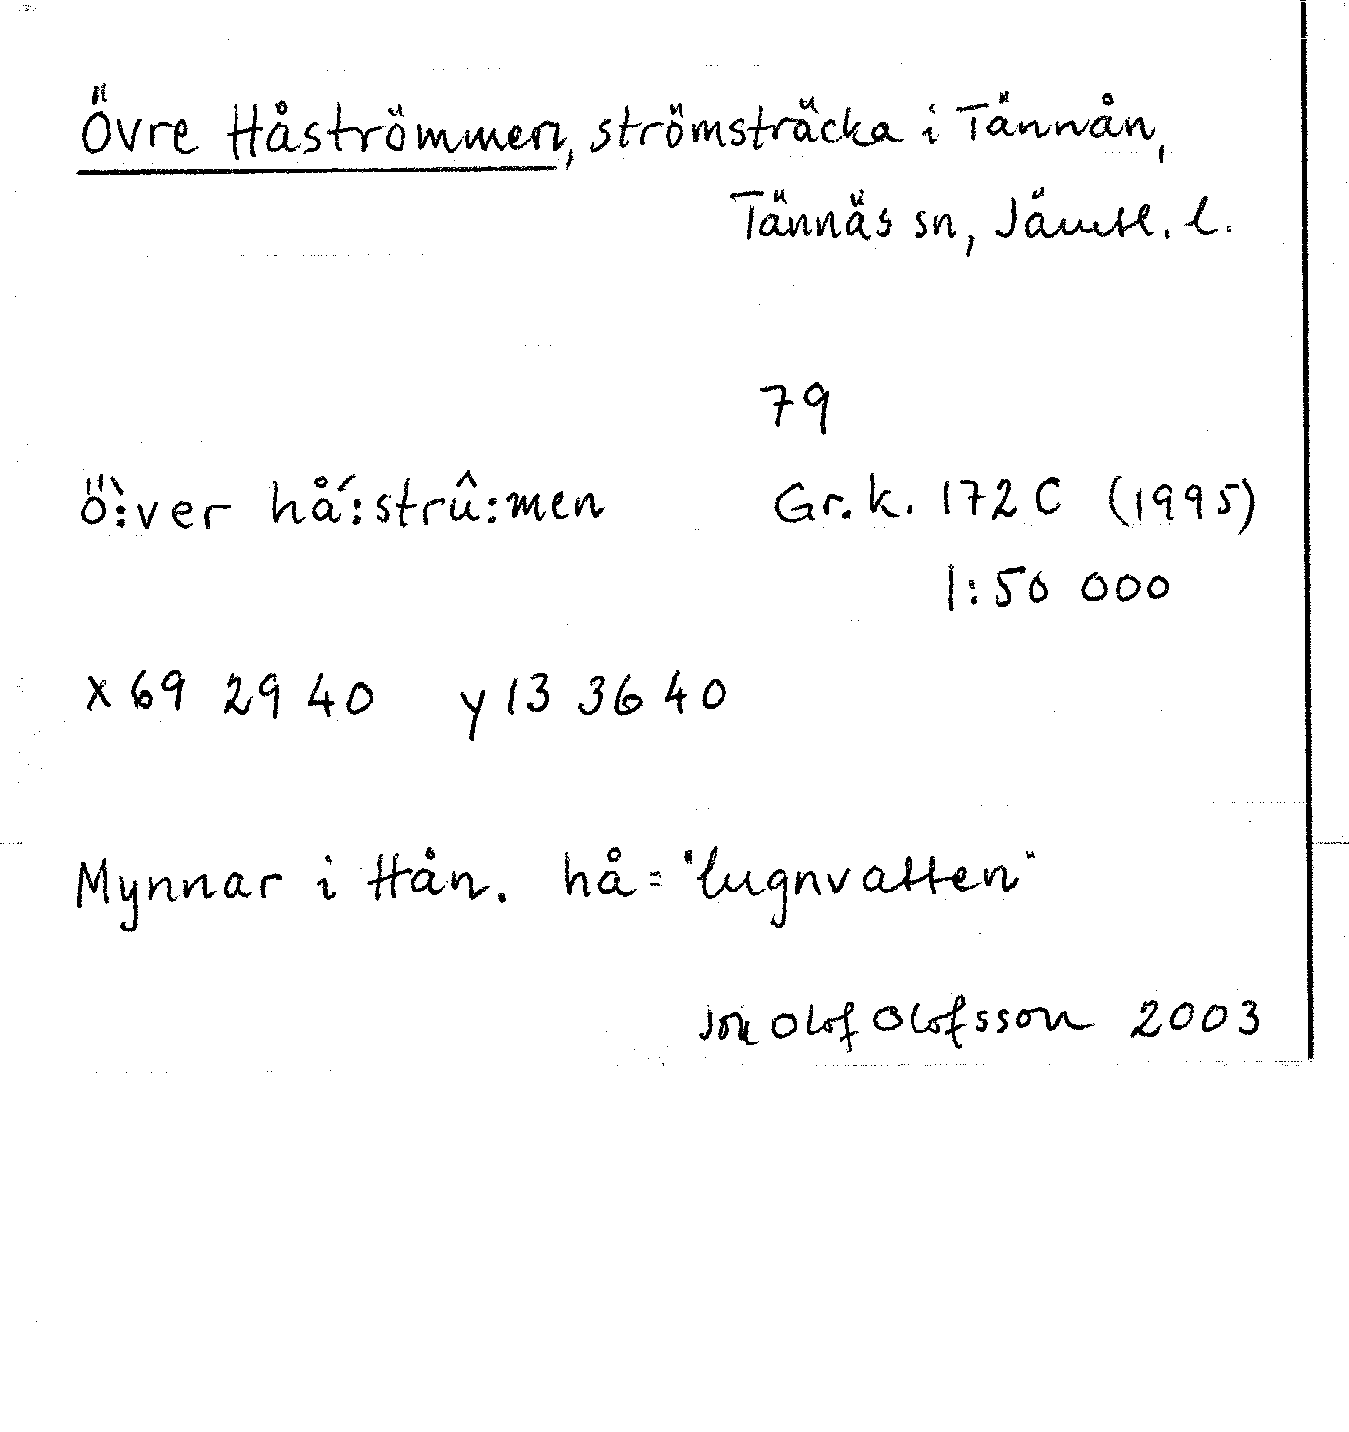 Övre Håströmmen, strömsträcka i Tännån,
Tännäs sn, Jämtl. l.
79
ö̀:ver hǻ:strû:men Gr.k. 172 C (1995)
1:50 000
x 69 29 40 y 13 36 40
Mynnar i Hån. hå = "lugnvatten"
Jon Olof Olofsson 2003